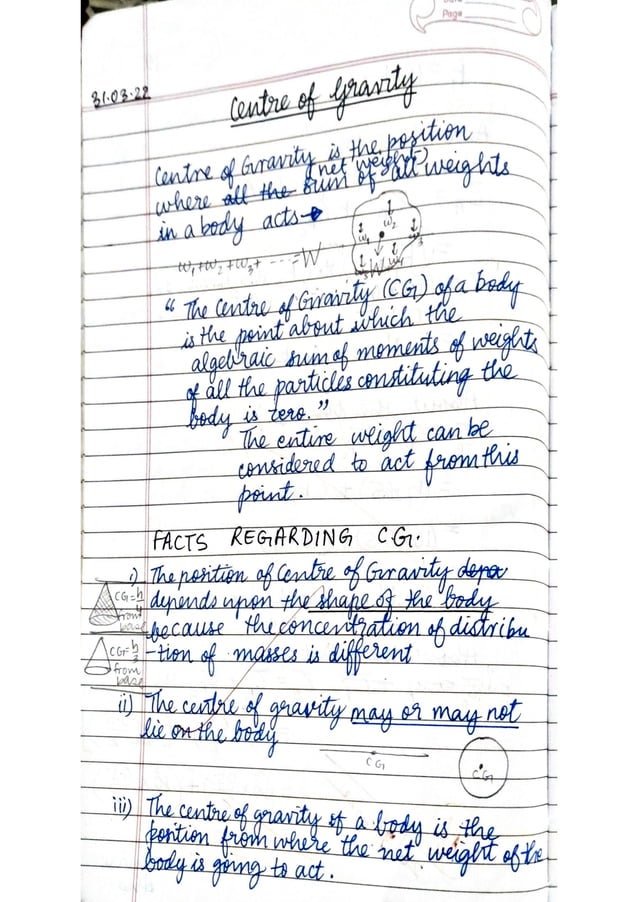 Page
31.03.22
Centre of Gravity
Centre of Gravity is the position
(net weight)
where all the sum of all weights
in a body acts
w₁+w₂+w₃+ ----=W
"The Centre of Gravity (CG) of a body
is the point about which the
algebraic sum of moments of weights
of all the particles constituting the
body is zero."
The entire weight can be
considered to act from this
point.
FACTS REGARDING C.G.
i) The position of Centre of Gravity depa
depends upon the shape of the body
because the concentration of distribu
-tion of masses is different
CG=h/4
from
base
CG=h/3
from
base
ii) The centre of gravity may or may not
lie on the body
CG
CG
iii) The centre of gravity of a body is the
portion from where the net weight of the
body is going to act.